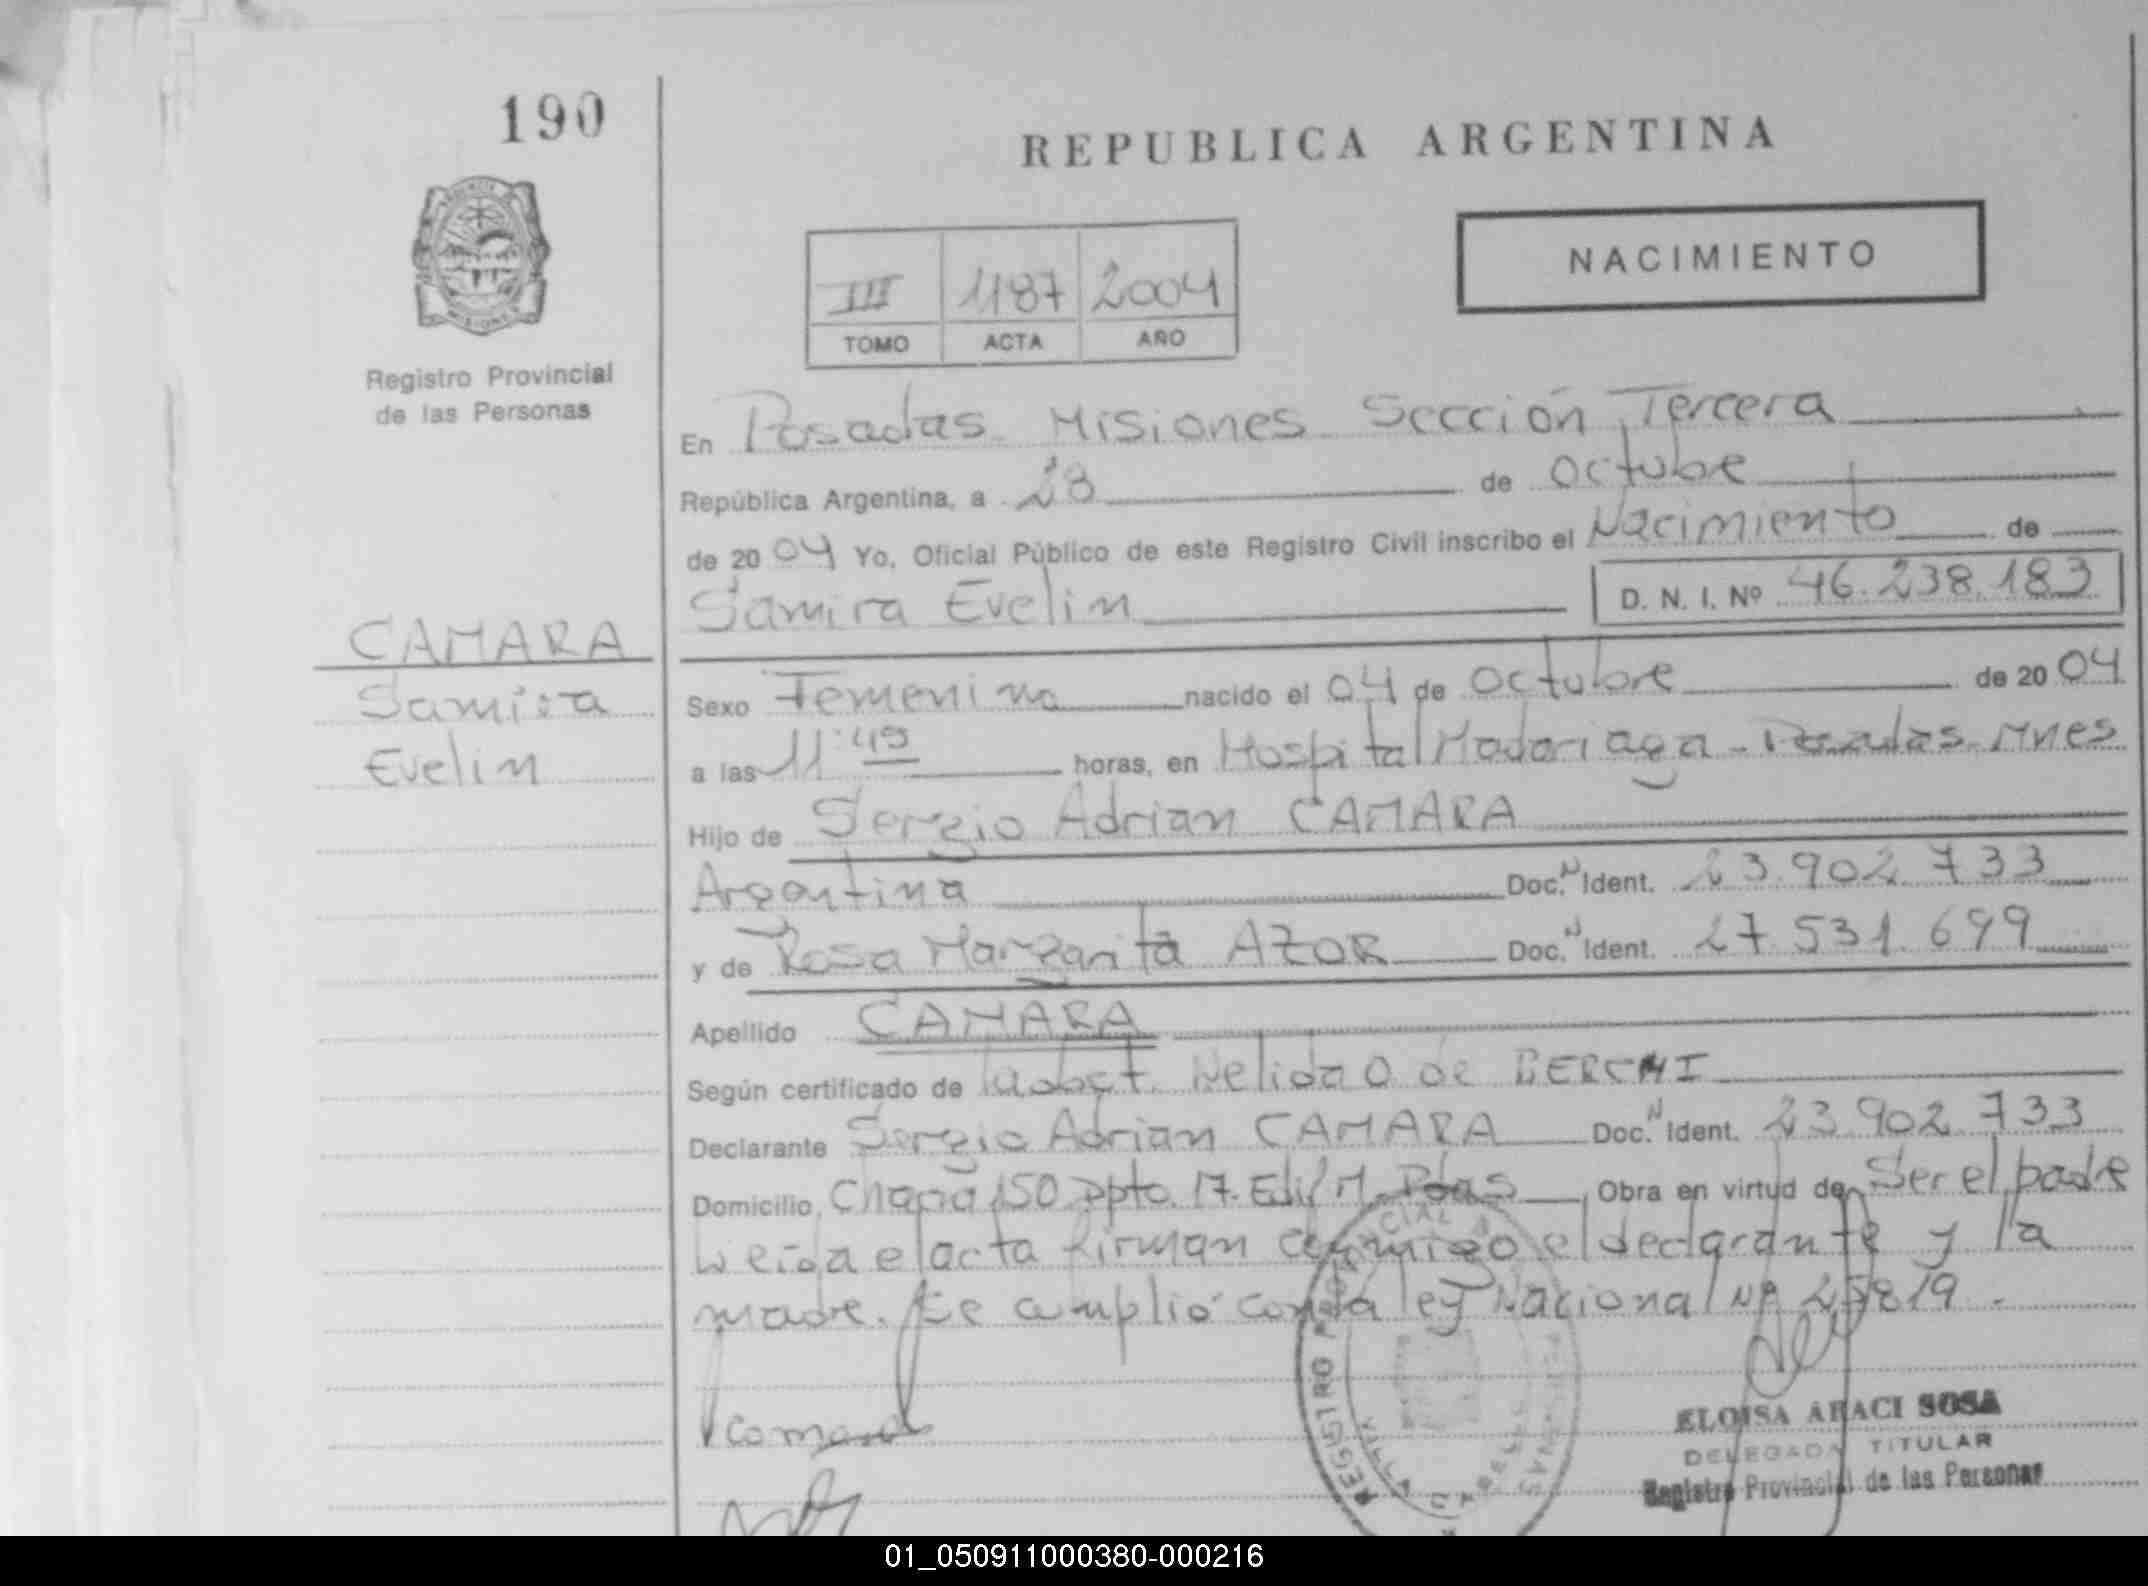 190
REPUBLICA ARGENTINA
NACIMIENTO
III 1187 2004
TOMO ACTA AÑO
Registro Provincial
de las Personas
En Posadas Misiones Sección Tercera
República Argentina, a 28 de Octubre
de 2004 Yo, Oficial Público de este Registro Civil inscribo el Nacimiento de
Samira Evelin D. N. I. Nº 46.238.183
CAMARA
Samira
Evelin
Sexo Femenino nacido el 04 de Octubre de 2004
a las 11:45 horas, en Hospital Madariaga - Posadas Mnes
Hijo de Sergio Adrian CAMARA
Argentina Doc. N Ident. 23.902.733
y de Rosa Margarita AZOR Doc. N Ident. 27.531.699
Apellido CAMARA
Según certificado de Nelida O de
Declarante Sergio Adrian CAMARA Doc. N Ident. 23.902.733
Domicilio 150 Dpto. 17. Edif M. Pdas Obra en virtud de Ser el padre
Leída el acta firman conmigo el declarante y la
madre. Se cumplió con la ley Nacional Nº 25819.
REGISTRO
ELOISA ARACI SOSA
DELEGADA TITULAR
Registro Provincial de las Personas
01_050911000380-000216